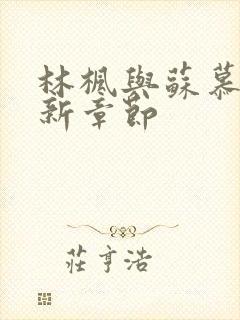 林楓與蘇慕
新章節
莊亨浩